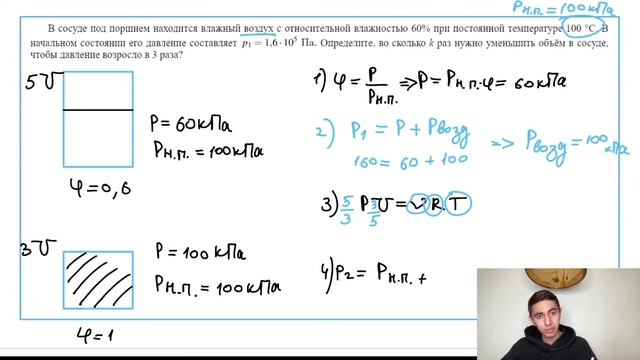 Pн.п. = 100 кПа
В сосуде под поршнем находится влажный воздух с относительной влажностью 60% при постоянной температуре 100 °C. В
начальном состоянии его давление составляет p₁ = 1,6·10⁵ Па. Определите, во сколько k раз нужно уменьшить объём в сосуде,
чтобы давление возросло в 3 раза?
5V
P = 60 кПа
Pн.п. = 100 кПа
φ = 0,6
3V
P = 100 кПа
Pн.п. = 100 кПа
φ = 1
1) φ = P/Pн.п. => P = Pн.п.·φ = 60 кПа
2) P₁ = P + Pвозд => Pвозд = 100 кПа
160 = 60 + 100
3) 5/3 P 3/5 V = νRT
4) P₂ = Pн.п. +